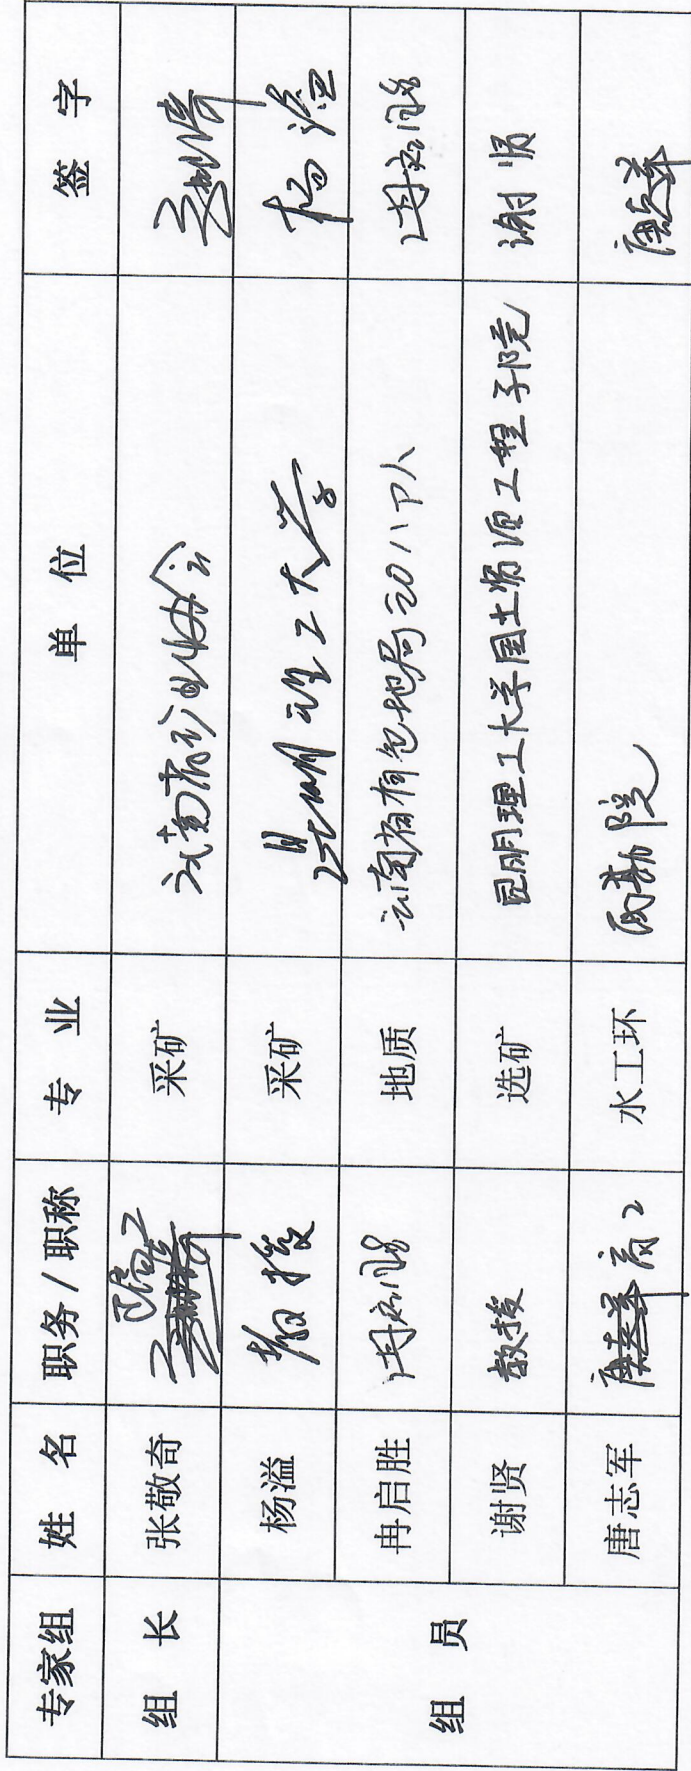 专家组 姓 名 职务/职称 专 业 单 位 签 字
组 长 张敬奇 高工 采矿 云南省矿业协会
组 员 杨溢 教授 采矿 昆明理工大学 杨溢
冉启胜 冉启胜 地质 云南省有色地质局三0八队 冉启胜
谢贤 教授 选矿 昆明理工大学国土资源工程学院 谢贤
唐志军 高工 水工环 唐志军